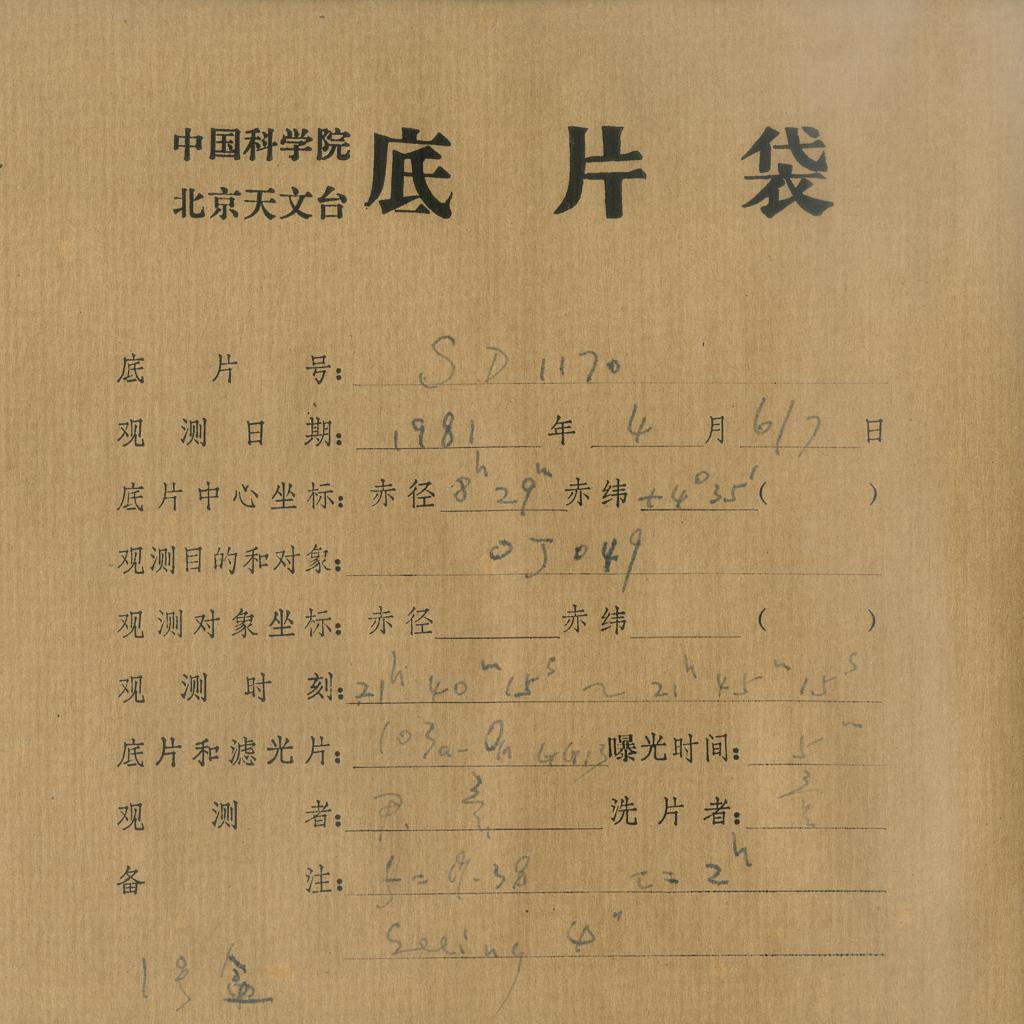 中国科学院
北京天文台
底片袋
底片号: SD1170
观测日期: 1981年4月6/7日
底片中心坐标: 赤径 8h29m 赤纬 +4°35′( )
观测目的和对象: OJ049
观测对象坐标: 赤径 赤纬 ( )
观测时刻: 21h40m15s ~ 21h45m15s
底片和滤光片: 103a-O GG13 曝光时间: 5m
观测者: 洗片者:
备注: f=9.38 t=2h
Seeing 4″
1号盒